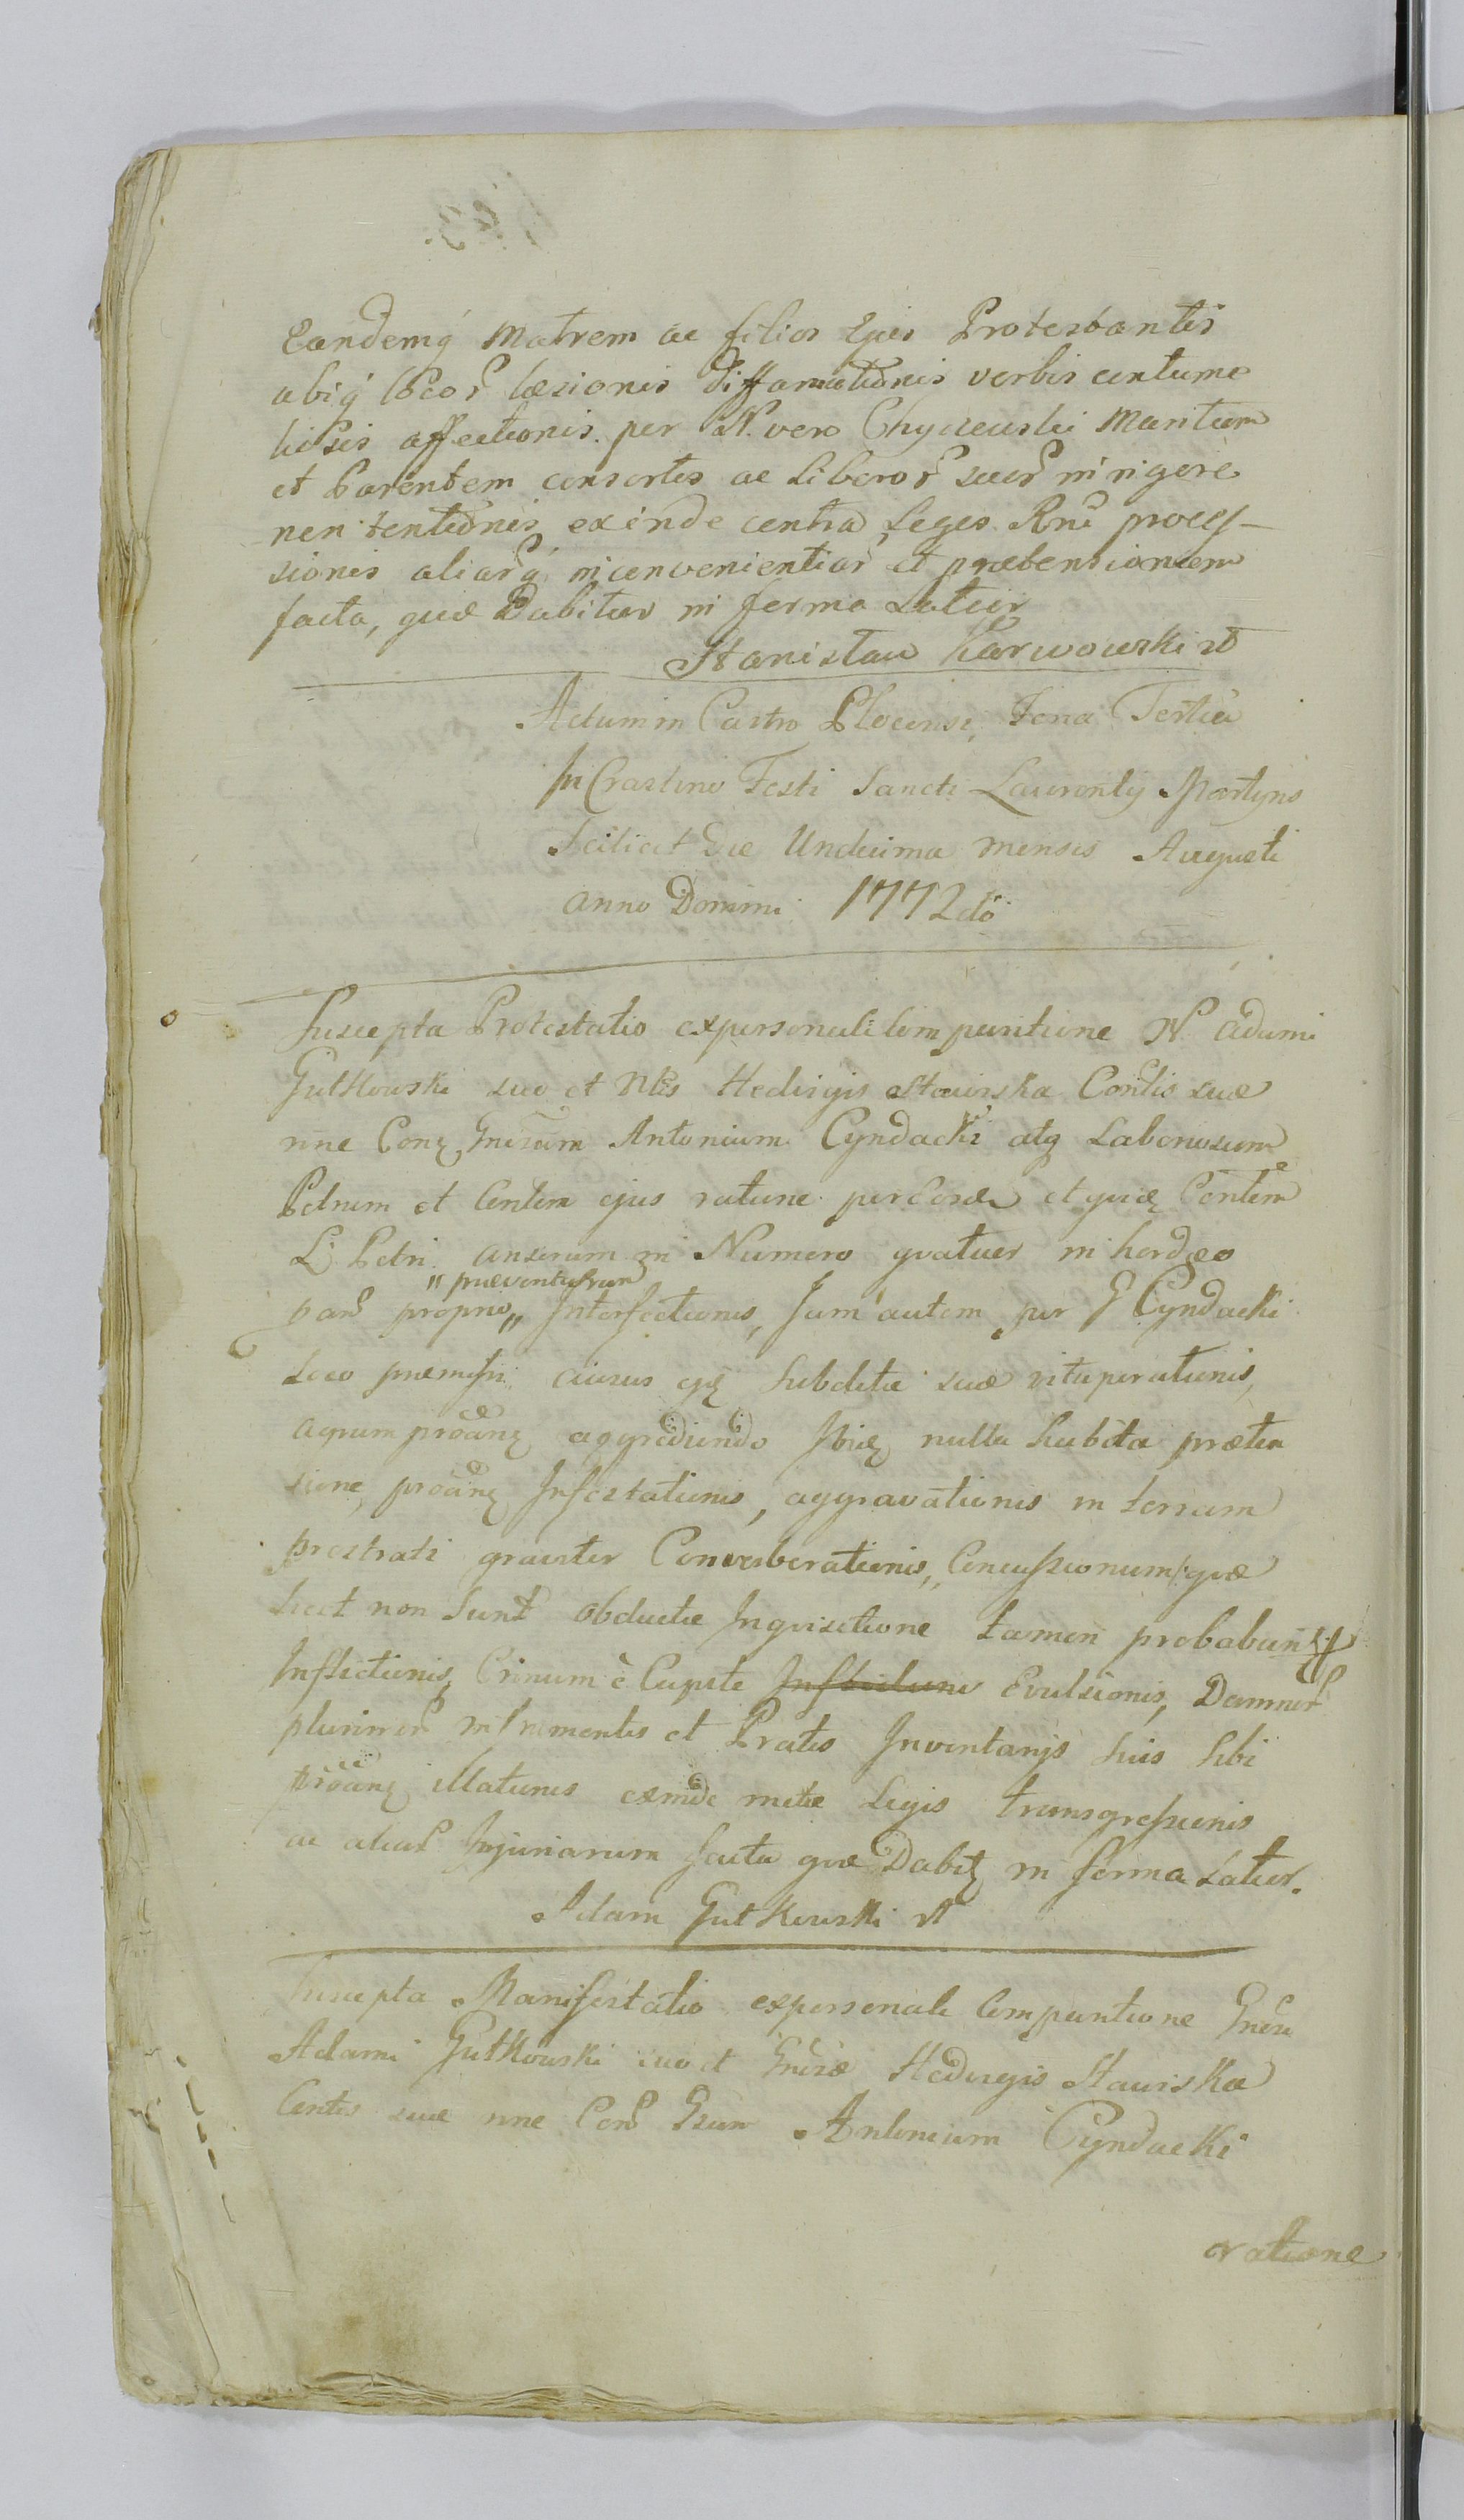 Eandemq́ Matrem ac filios Ejus Protestantis
abiq́ locor̃ læsionis diffamationis verbis contume
liosis affectionis per N. vero Chyczewski Maritum
et Parentem consortis ac liberor̃ suor̃ in rigore
non tentionis, exinde contra Leges Rni proces-
sionis aliarq́, inconvenientiar̃ et prætensionem
facta, quæ Dabitur in forma Latior
Stanisław Karwowski
Actum in Castro Plocensi, Feria Tertia
In Crastino Festi Sancti Laurentÿ Martyris
Scilicet Die Undecima mensis Augusti
Anno Domini 1772do
Suscepta Protestatio ex personali Comparitione N. Adami
Gutkowski suo et Nlis Hedvigis Stawiska Contis suæ
nne Conq Gnrsum Antonium Cyndacki atq Laboriosum
Petrum et Contem ejus ratione per eosdem et quæ Contem
L: Petri anserum in Numero qvatuor in hordeo
par̃ proprio „ Interfectionis, Jam autem per G Cyndacki
„ præventorum
loco præmissi ejq subditæ suæ vituperationis,
agrum próanq aggrediendo Ibiq nulla habita præten
sione, próanq Infestationis, aggravationis in terram
prostrati graviter Converberationis, Concussionum /: qvæ
licet non sunt obductæ Inqvisitione tamen probabuntq :/
Inflictionis, Crinum è Capite Inflictionis Evulsionis, Damnor̃
plurimor̃ in frumentis et Pratis Inventarÿs suis sibi
próanq illationis exinde metæ Legis transgressionis
ac aliar̃ Injuriarum facta qvæ Dabitq in forma Latior.
Adam Gutkowski
Suscepta Manifestatio ex personali Comparitione Gnrsi
Adami Gutkowski suo et Gnrsæ Hedvigis Stawiska
Contis suæ nne Con̄ Gsum Antonium Cyndacki
ratione